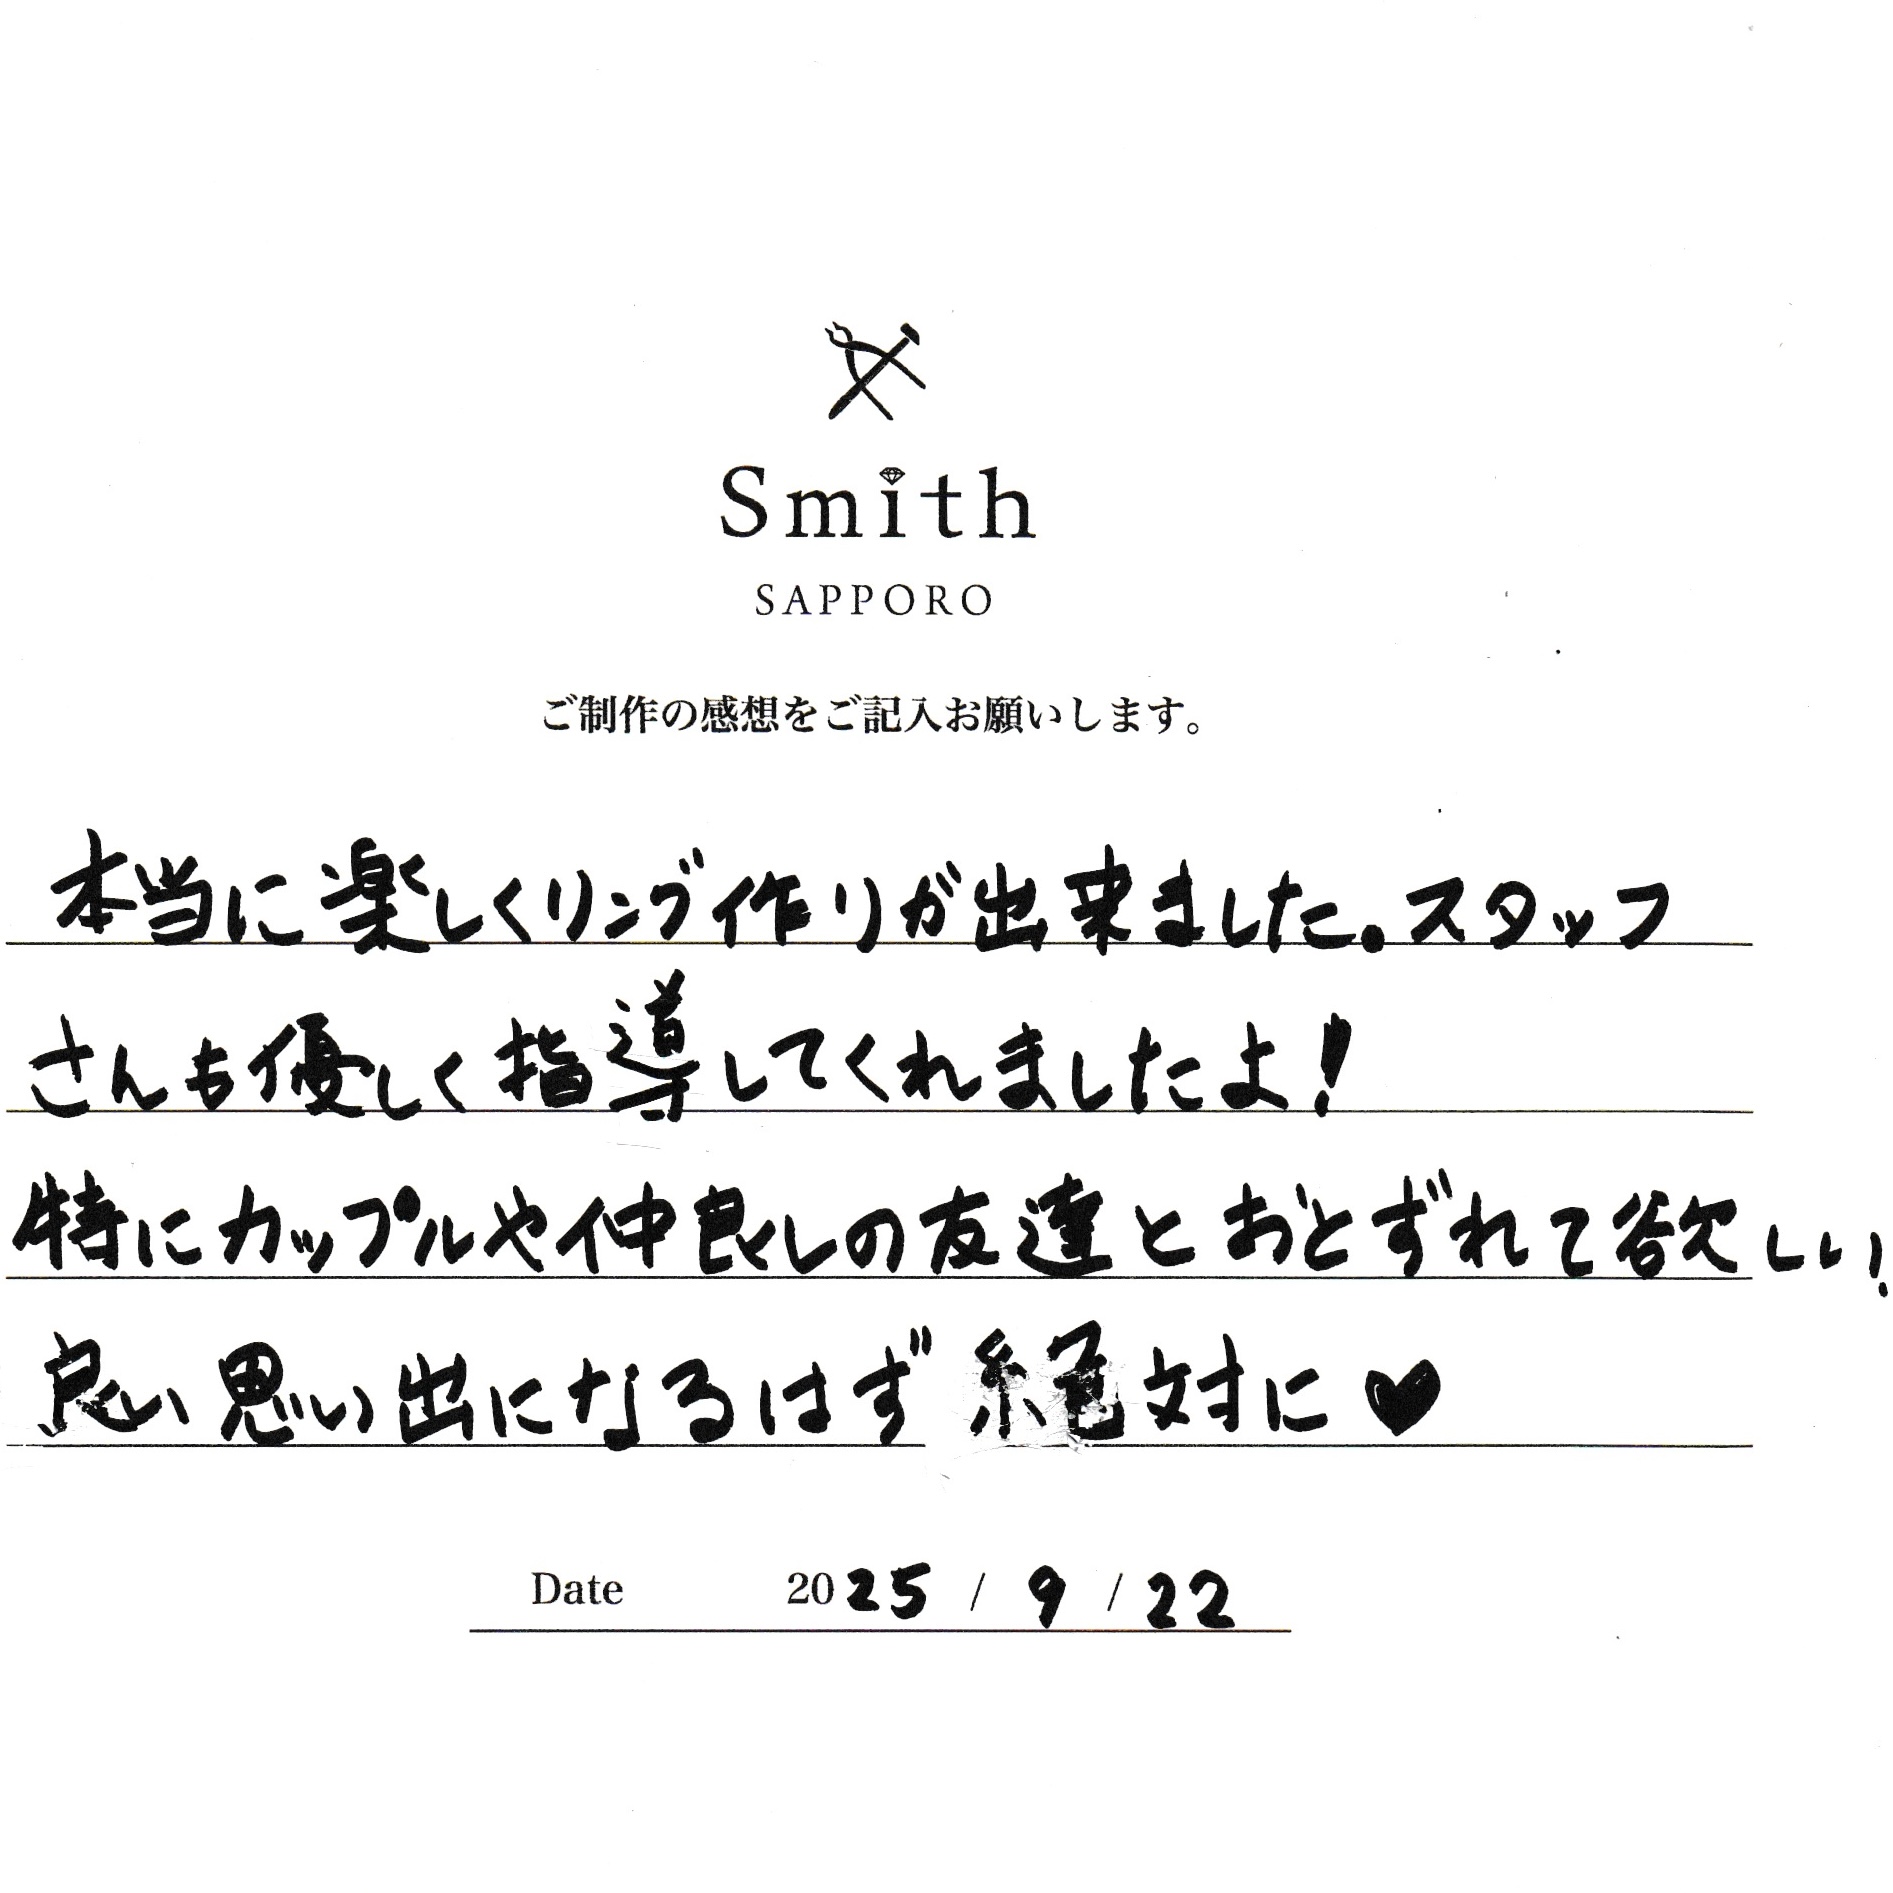 Smith
SAPPORO
ご制作の感想をご記入お願いします。
本当に楽しくリング作りが出来ました。スタッフ
さんも優しく指導してくれましたよ!
特にカップルや仲良しの友達とおとずれて欲しい!
良い思い出になるはず絶対に♥
Date 2025 / 9 / 22